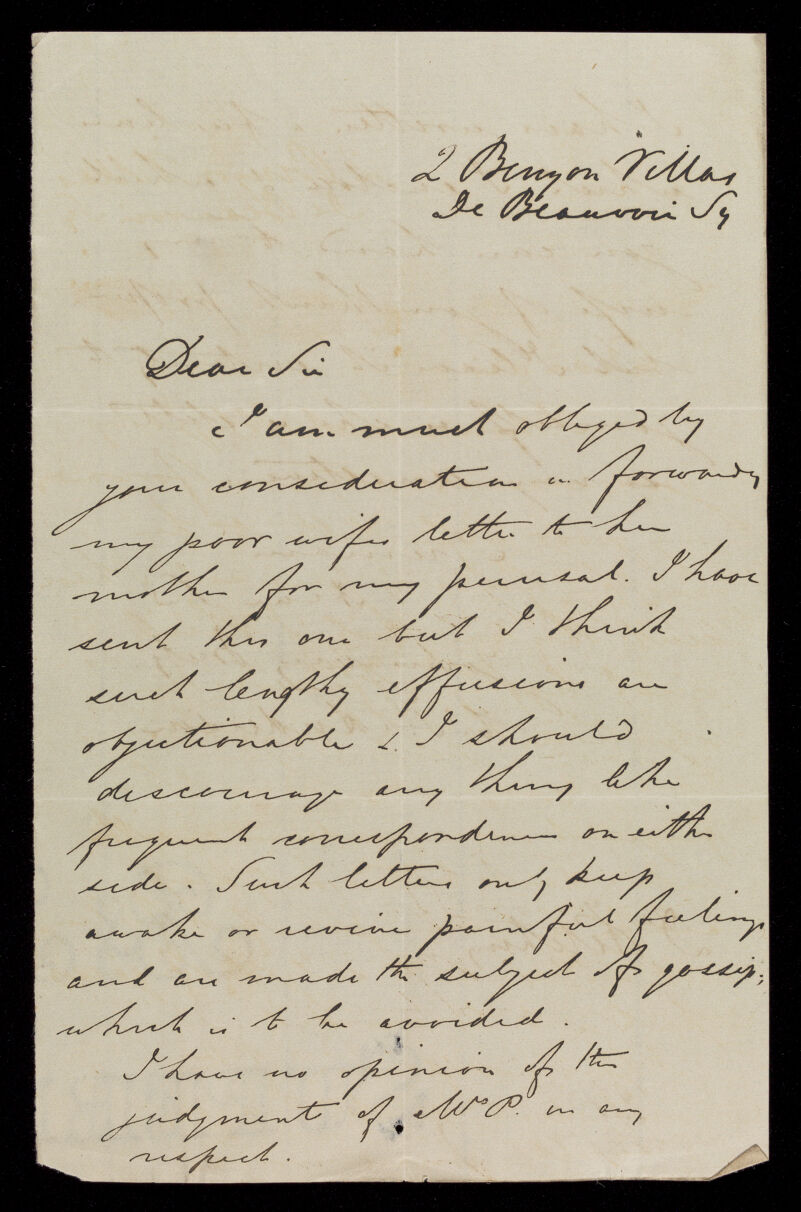 2 Benyon Villas
De Beauvoir Sq
Dear Sir
I am much obliged by
your consideration in forwarding
my poor wifes letter to her
mother for my perusal. I have
sent this one but I think
such lengthy effusions are
objectionable & I should
discourage any thing like
frequent correspondence on either
side. Such letters only keep
awake or revive painful feelings
and are made the subject of gossip,
which is to be avoided.
I have no opinion of the
judgment of Mrs P. in any
respect.